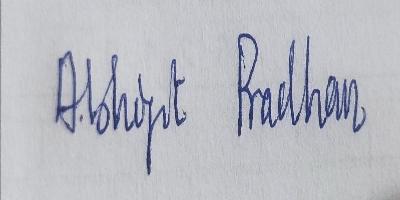 Abhijit Pradhan